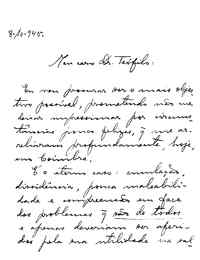 8-10-945.
Meu caro Dr. Teófilo:
Eu vou procurar ser o mais obje-
tivo possível, prometendo não me
deixar impressionar por circuns-
tancias pouco felizes, q me
profundamente, hoje,
em Coimbra.
E o atam caso: emulação,
dissidência, pouca maleabili-
dade e compreensão em face
dos problemas q são de todos
e apenas deveriam ser aferi-
dos pela sua utilidade na sal